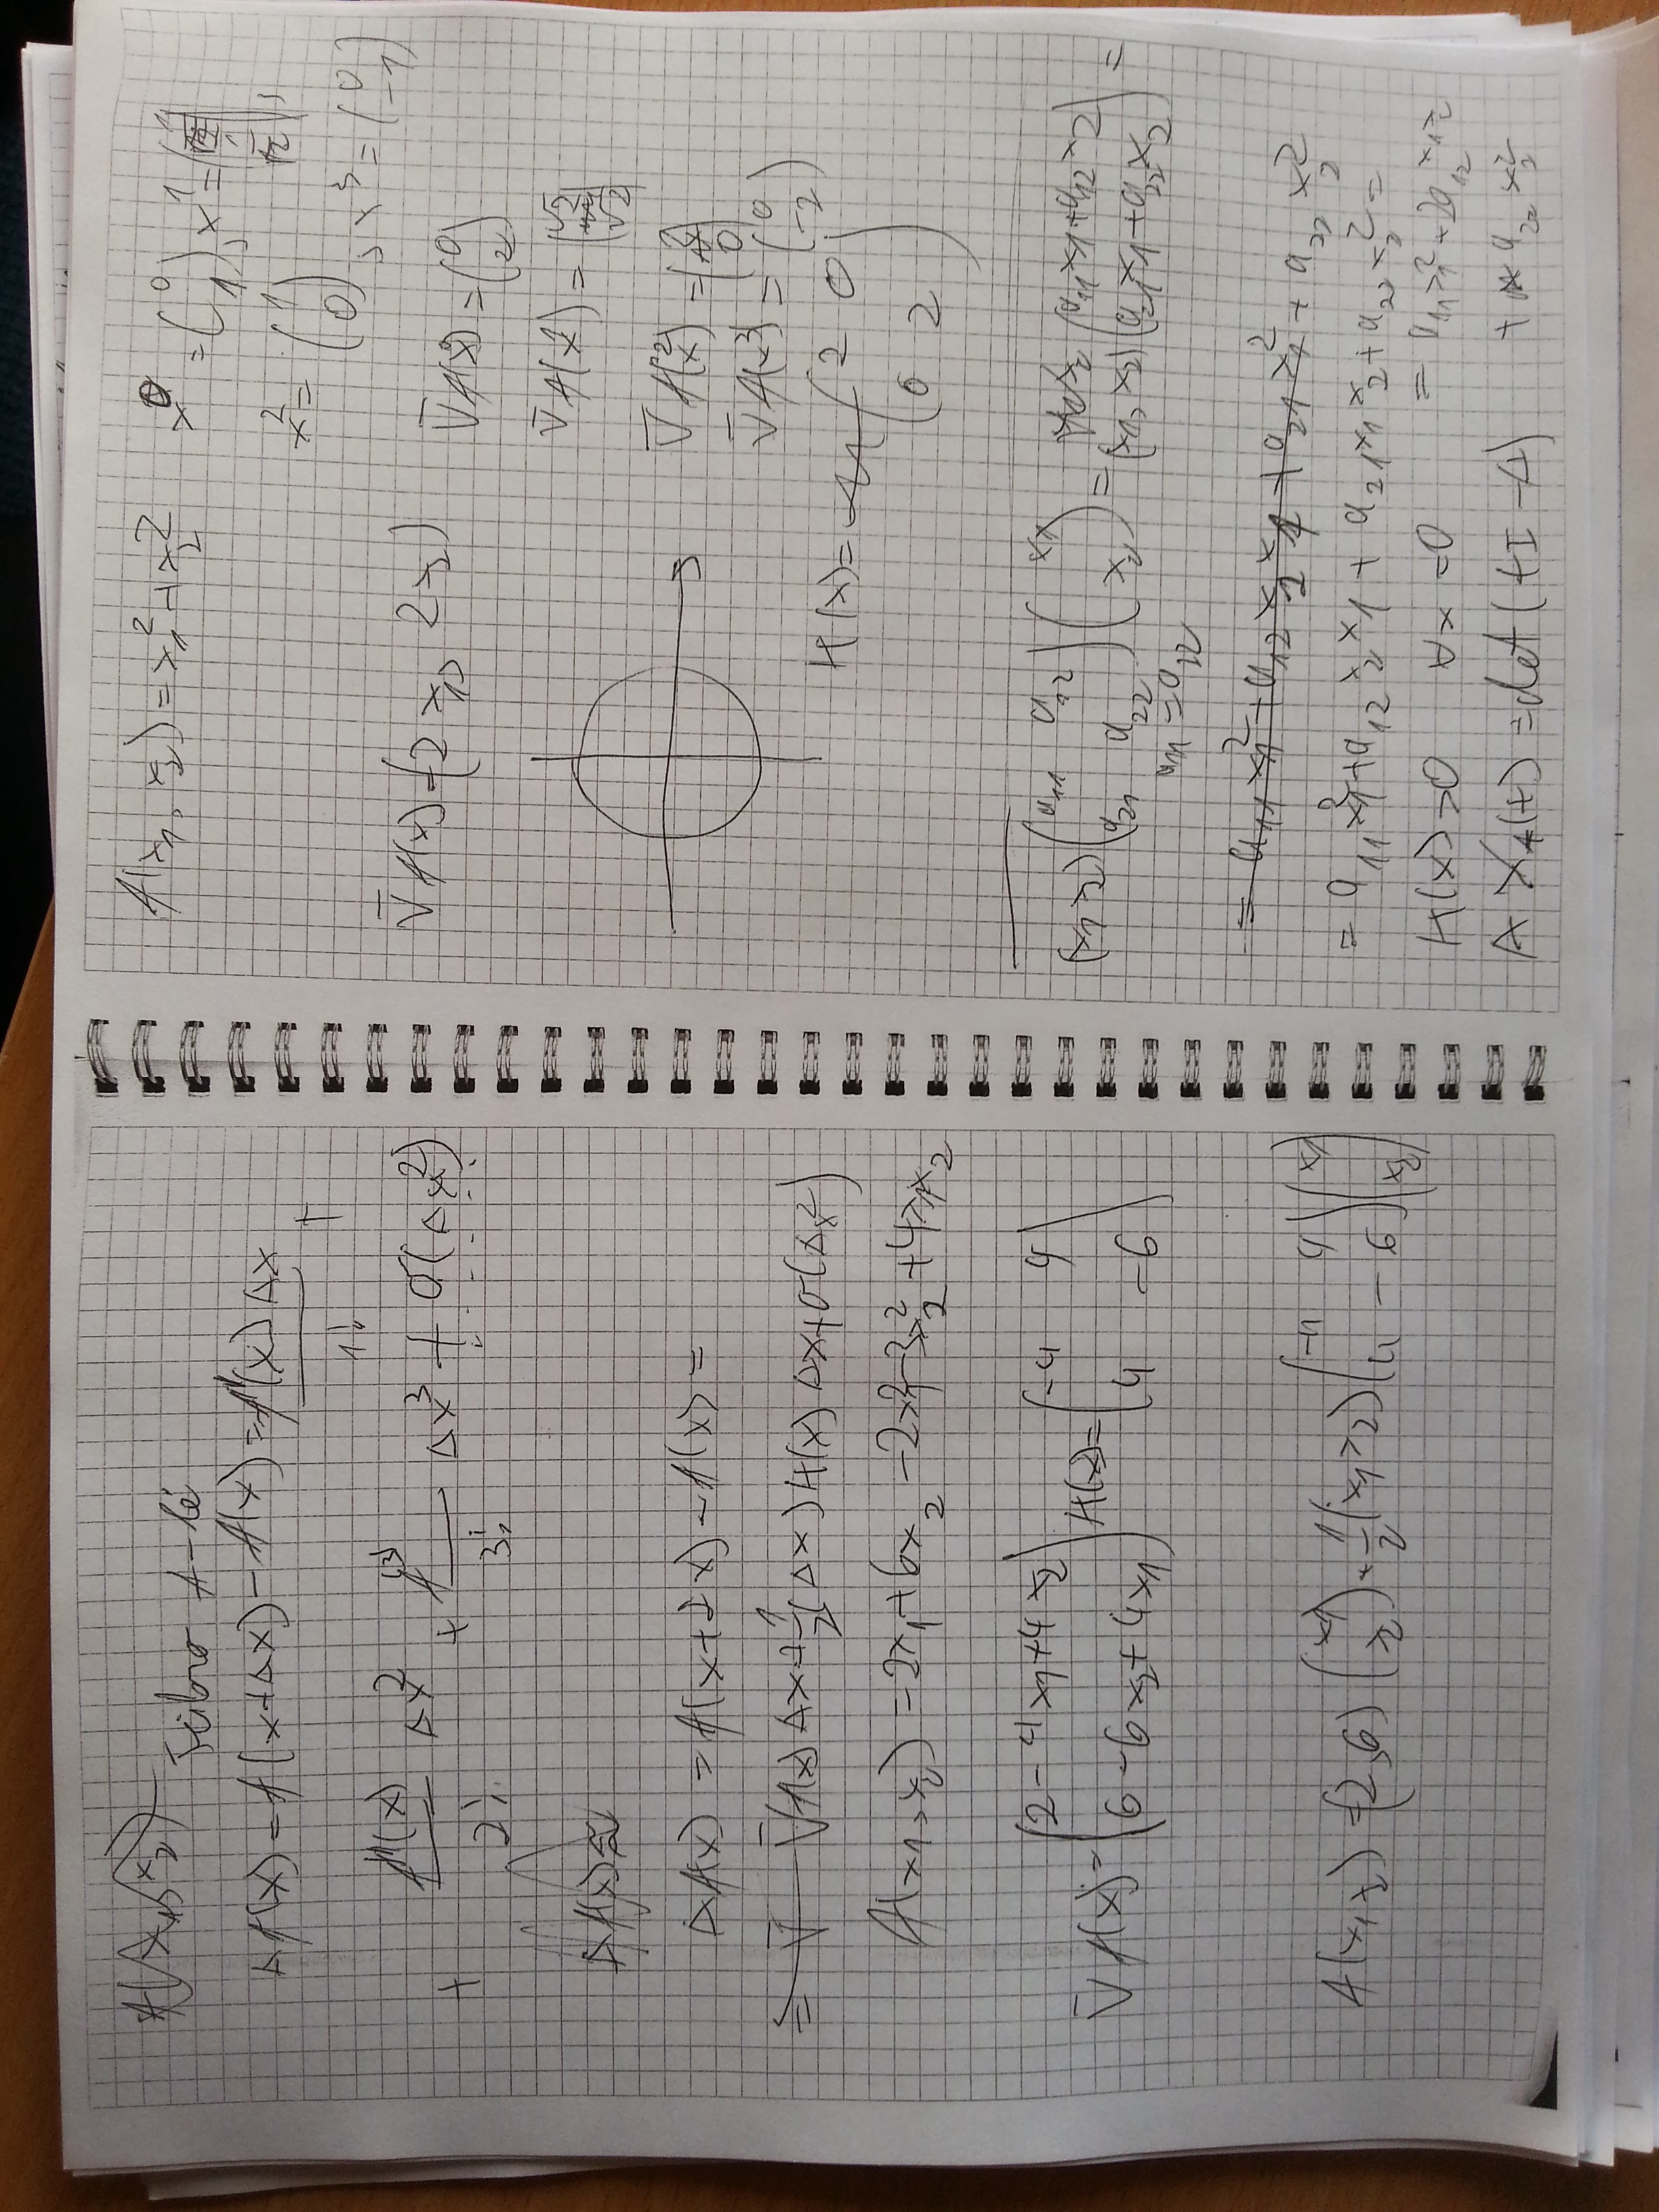 f(x₁, x₂)
Δf(x) = f(x+Δx) - f(x) = f'(x) Δx / 1! +
+ f''(x) / 2! Δx² + f⁽³⁾ / 3! Δx³ + σ(Δx²)
Δf(x) ≈
Δf(x) = f(x+2x) - f(x) =
= ∇̄ ∇̄f(x) Δx + 1/2 (Δx) H(x) Δx + σ(Δx²)
f(x₁, x₂) = 2x₁ + 6x₂ - 2x₁² - 3x₂² + 4x₁x₂
∇̄f(x) = (2 - 4x₁ + 4x₂ ; 6 - 6x₂ + 4x₁) H(x) = (-4 4 ; 4 -6)
f(x₁, x₂) = (2, 6) (x₁ ; x₂) + 1/2 (x₁ x₂) (-4 4 ; 4 -6) (x₁ ; x₂)
f(x₁, x₂) = x₁² + x₂² x⁰ = (0 ; 1), x¹ =
x² = (1 ; 0), x³ = (0 ; -1)
∇̄f(x) = (2x₁, 2x₂)
∇̄f(x⁰) = (0 ; 2)
∇̄f(x¹) = (√2 ; √2)
∇̄f(x²) = (2 ; 0)
∇̄f(x³) = (0 ; -2)
H(x) = (2 0 ; 0 2)
(x₁ x₂) (a₁₁ a₁₂ ; a₂₁ a₂₂) (x₁ ; x₂) = (x₁, x₂) (a₁₁x₁ + a₁₂x₂ ; a₂₁x₁ + a₂₂x₂) =
= a₂₂
= a₁₁x₁² + a₁₂x₂x₁ + a₂₁x₁² + a₂₂x₂²
= a₁₁x₁² + a₁₂x₂x₁ + a₂₁x₁x₂ + a₂₂x₂² =
H(x) > 0 ∀x = 0 = a₁₁x₁² + 2a₁₂x₁x₂
A X_A(t) = det(tI - A) + a₂₂x₂²